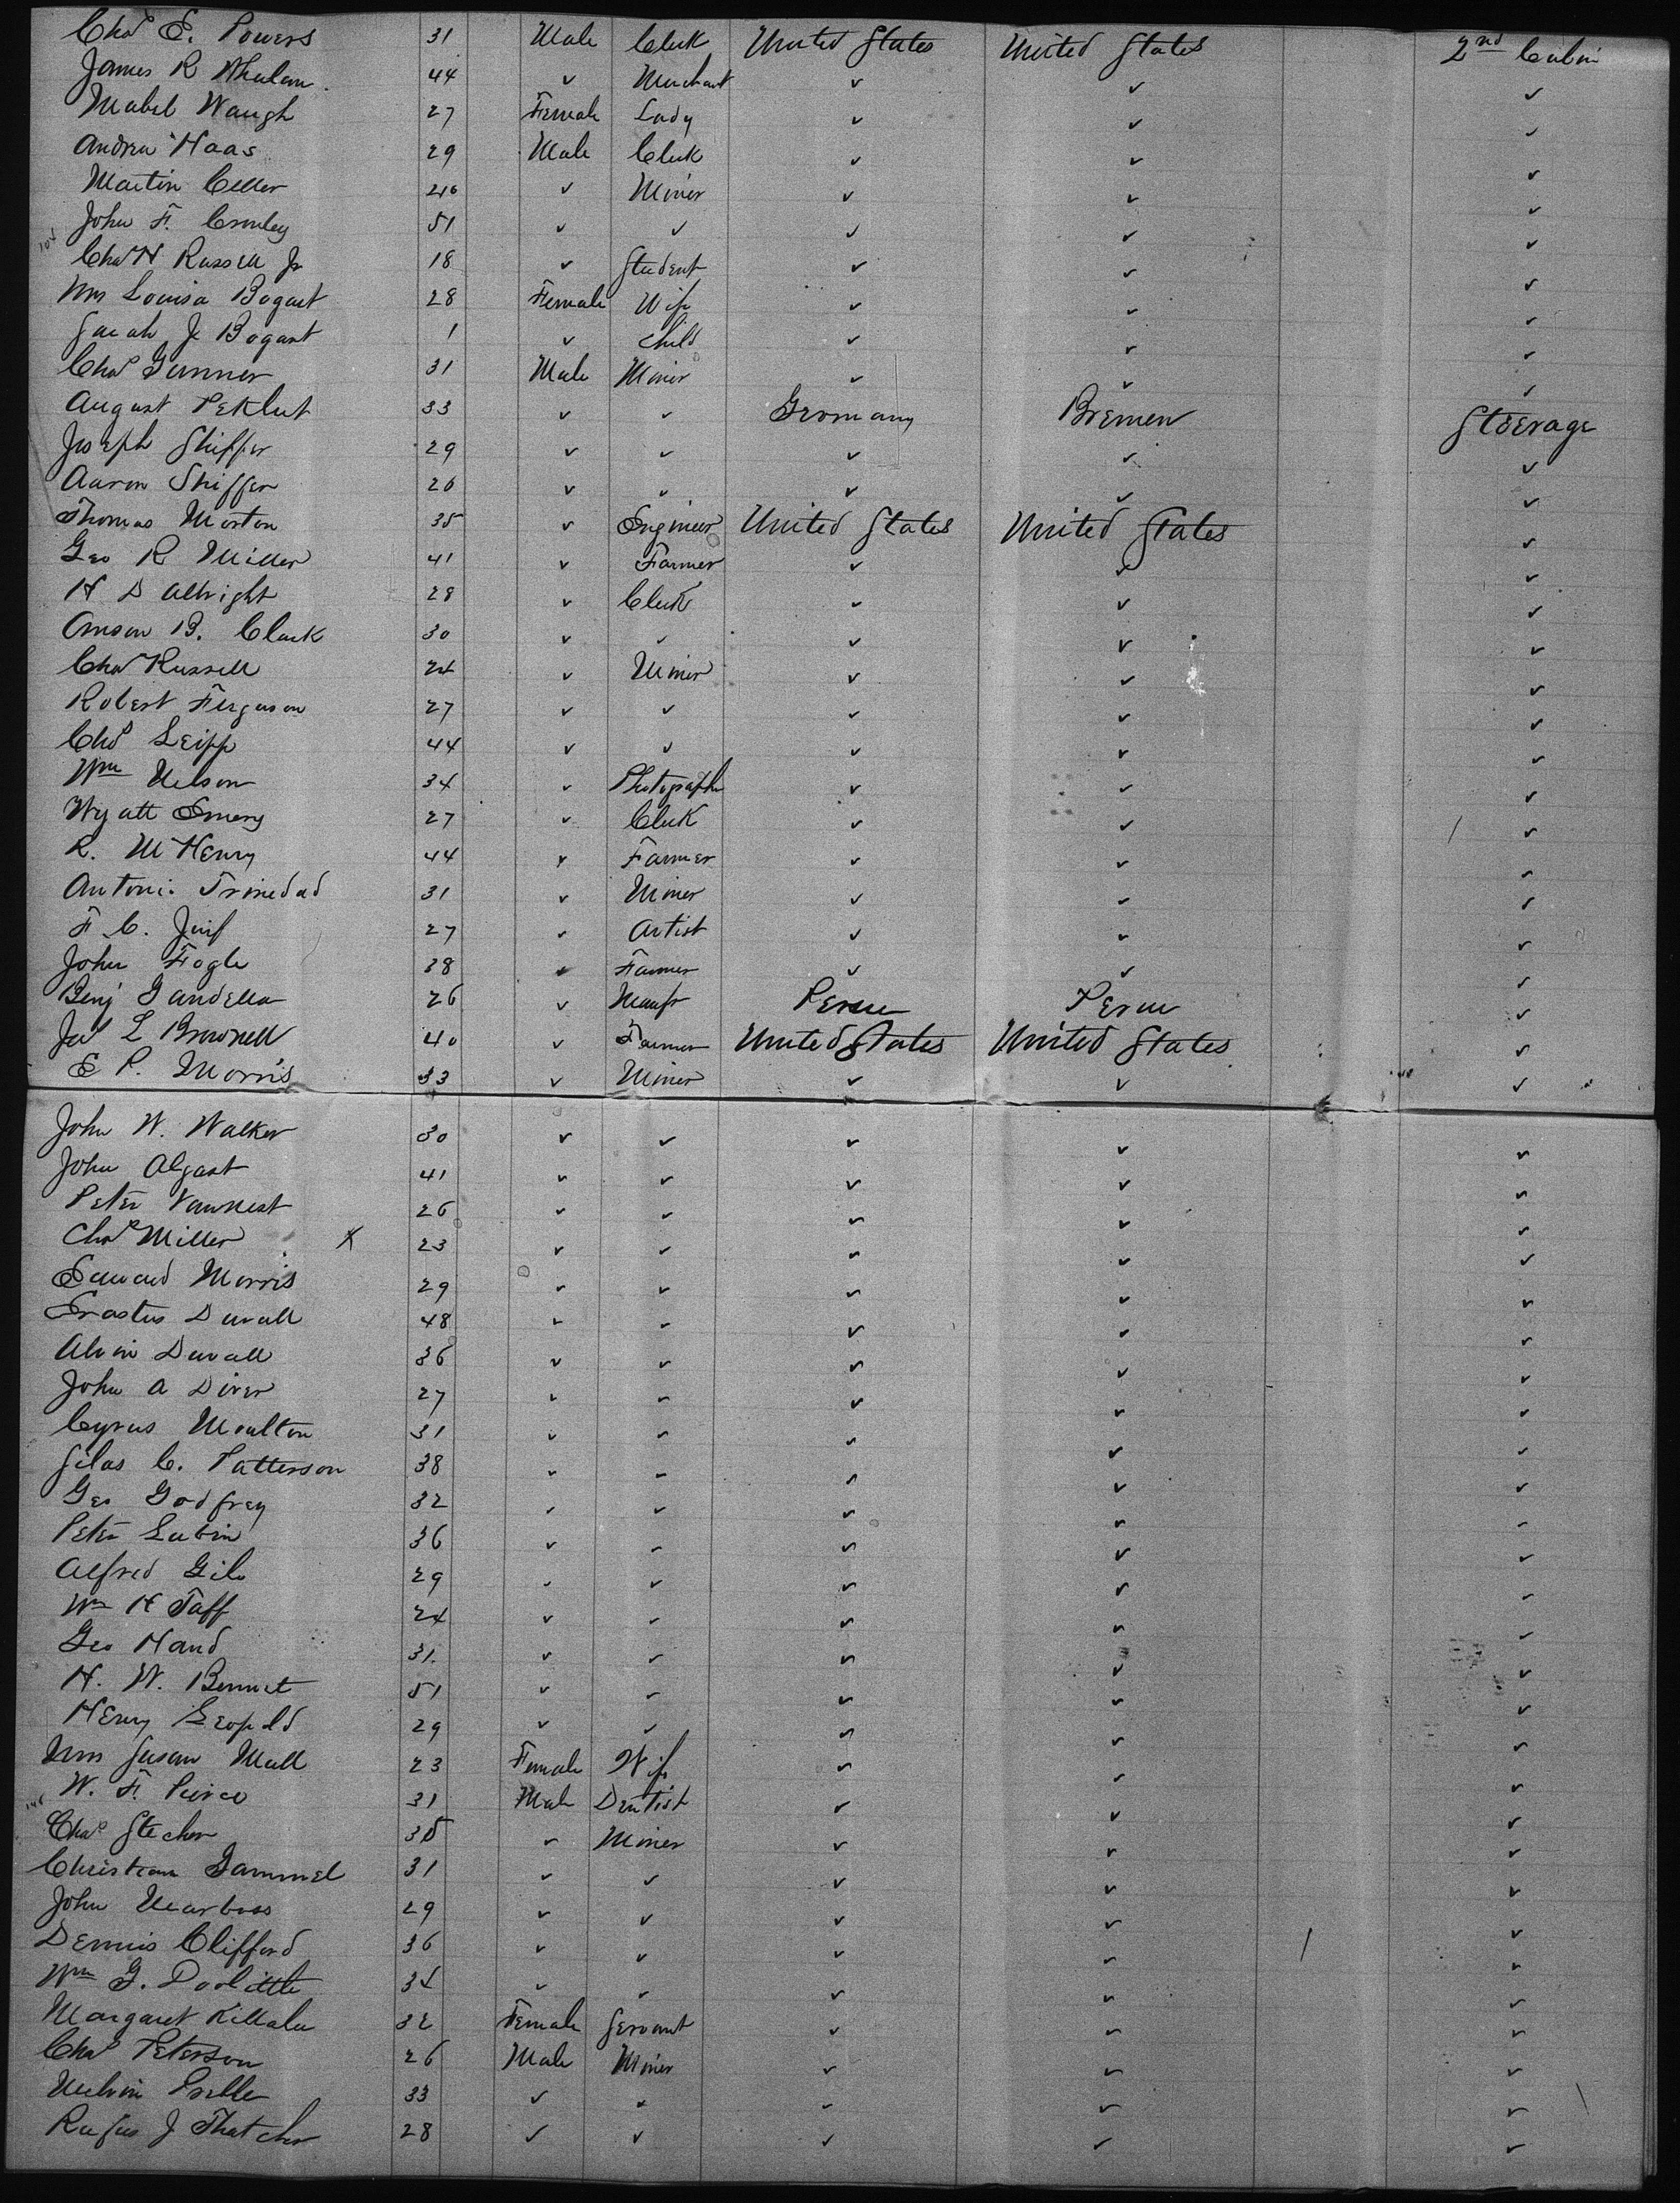 Chas E. Powers 31 Male Clerk United States United States 2nd Cabin
James R Whalen 44 ✓ Merchant ✓ ✓ ✓
Mabel Waugh 27 Female Lady ✓ ✓ ✓
Andrew Haas 29 Male Clerk ✓ ✓ ✓
Martin Celler 46 ✓ Miner ✓ ✓ ✓
John F. Cromley 51 ✓ ✓ ✓ ✓ ✓
Chas H Russell Jr 18 ✓ Student ✓ ✓ ✓
Mrs Louisa Bogart 28 Female Wife ✓ ✓ ✓
Sarah J Bogart 1 ✓ Child ✓ ✓ ✓
Chas Gunner 31 Male Miner ✓ ✓ ✓
August 33 ✓ ✓ Germany Bremen Steerage
Joseph Shiffer 29 ✓ ✓ ✓ ✓ ✓
Aaron Shiffer 26 ✓ ✓ ✓ ✓ ✓
Thomas Morton 35 ✓ Engineer United States United States ✓
Geo R Miller 41 ✓ Farmer ✓ ✓ ✓
H D Albright 28 ✓ Clerk ✓ ✓ ✓
Anson B. Clark 30 ✓ ✓ ✓ ✓ ✓
Chas Russell 24 ✓ Miner ✓ ✓ ✓
Robert Ferguson 27 ✓ ✓ ✓ ✓ ✓
Chas Leipp 44 ✓ ✓ ✓ ✓ ✓
Wm Nelson 34 ✓ Photographer ✓ ✓ ✓
Wyatt Emery 27 ✓ Clerk ✓ ✓ ✓
R. McHenry 44 ✓ Farmer ✓ ✓ ✓
Antoni. Trinedad 31 ✓ Miner ✓ ✓ ✓
F. C. 27 ✓ Artist ✓ ✓ ✓
John Fogle 38 ✓ Farmer ✓ ✓ ✓
Benj Gandella 26 ✓ Manfr Peru Peru ✓
Jas L Brownell 40 ✓ Farmer United States United States ✓
E P. Morris 33 ✓ Miner ✓ ✓ ✓
John W. Walker 30 ✓ ✓ ✓ ✓ ✓
John Algast 41 ✓ ✓ ✓ ✓ ✓
Peter Vannest 26 ✓ ✓ ✓ ✓ ✓
Chas Miller X 23 ✓ ✓ ✓ ✓ ✓
Edward Morris 29 ✓ ✓ ✓ ✓ ✓
Erastus Duvall 48 ✓ ✓ ✓ ✓ ✓
Alvin Duvall 36 ✓ ✓ ✓ ✓ ✓
John A Diver 27 ✓ ✓ ✓ ✓ ✓
Cyrus Moulton 31 ✓ ✓ ✓ ✓ ✓
Silas C. Patterson 38 ✓ ✓ ✓ ✓ ✓
Geo Godfrey 32 ✓ ✓ ✓ ✓ ✓
Peter Lubin 36 ✓ ✓ ✓ ✓ ✓
Alfred Gile 29 ✓ ✓ ✓ ✓ ✓
Wm H Taff 24 ✓ ✓ ✓ ✓ ✓
Geo Hand 31. ✓ ✓ ✓ ✓ ✓
H. W. Bennet 51 ✓ ✓ ✓ ✓ ✓
Henry Leopold 29 ✓ ✓ ✓ ✓ ✓
Mrs Susan Mull 23 Female Wife ✓ ✓ ✓
W. F. Peirce 31 Male Dentist ✓ ✓ ✓
Chas Stecher 35 ✓ Miner ✓ ✓ ✓
Christian Gammel 31 ✓ ✓ ✓ ✓ ✓
John 29 ✓ ✓ ✓ ✓ ✓
Dennis Clifford 36 ✓ ✓ ✓ ✓ ✓
Wm G. Doolittle 34 ✓ ✓ ✓ ✓ ✓
Margaret Killalee 32 Female Servant ✓ ✓ ✓
Chas Peterson 26 Male Miner ✓ ✓ ✓
Melvin 33 ✓ ✓ ✓ ✓ ✓
Rufus J Thatcher 28 ✓ ✓ ✓ ✓ ✓